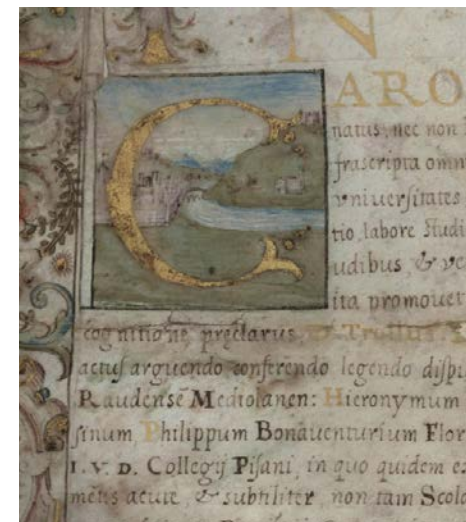 I N
CARO
natus, nec non
frascripta omn
vniuersitates
tio, labore studi
udibus, & ve
ita promouet
cognitione preclarus, D. Troilus
actus arguendo conferendo legendo dispu
Raudensē Mediolanen: Hieronymum
sinum, Philippum Bonauenturium Flor
I. V. D. Collegij Pisani, in quo quidem e
metis acute, & subtiliter non tam Scol